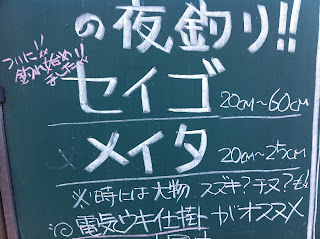 の夜釣り!!
ついに!!
釣れ始め
ました!!
セイゴ 20cm～60cm
メイタ 20cm～25cm
※時には大物 スズキ?チヌ?も!
電気ウキ仕掛けがオススメ